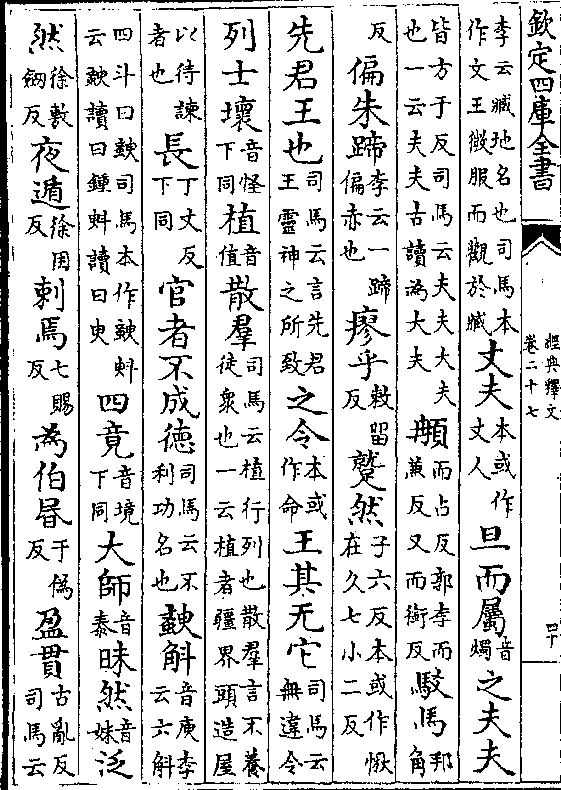 欽定四庫全書
經典釋文
卷二十七
四十
李云臧地名也司馬本作文王微服而觀於臧丈夫本或作丈人旦而屬音燭之夫夫
皆方于反司馬云夫夫大夫也一云夫夫古讀為大夫䫇而占反郭李而兼反又而銜反駮馬邦角
反偏朱蹄李云一蹄偏赤也瘳乎敕留反蹵然子六反本或作愀在久七小二反
先君王也司馬云言先君王靈神之所致之令本或作命王其无它司馬云無違令
列士壞音怪下同植音值散羣司馬云植行列也散羣言不養徒衆也一云植者疆界頭造屋
以待諫者也長丁丈反下同官者不成德司馬云不利功名也斔斛音庾李云六斛
四斗曰斔司馬本作斔㪶云斔讀曰鍾㪶讀曰臾四竟音境下同大師音泰昧然音妹泛
然徐敷劒反夜遁徐困反刺焉七賜反為伯昬于偽反盈貫古亂反司馬云